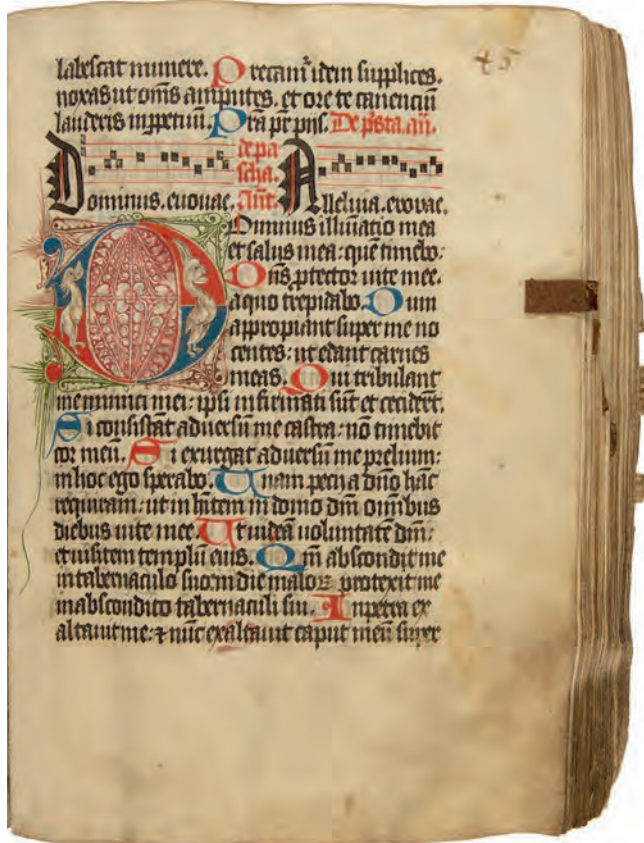 45
labescat munere. Precam̃ idem supplices.
noxas ut om̃s amputes. et ore te canenciũ
lauderis inppetuũ. Pr̃a pr̃ De añ.
de pa
scha.
Dominus. euouae. Ãnt. Alleluia. euouae.
Dominus illũatio mea
et salus mea: quẽ timebo:
Dñs ptector uite mee.
a quo trepidabo. Dum
appropiant super me no
centes: ut edant carnes
meas. Qui tribulant
me inimici mei: ipsi infirmati sũt et cecidert̃.
Si consistãt aduersũ me castra: nõ timebit
cor meũ. Si exurgat aduersũ me prelium:
in hoc ego sperabo. Unam pecij a dño hãc
requiram: ut inhĩtem in domo dñi omĩbus
diebus uite mee. Ut uideã uoluntatẽ dñi:
et uisitem templũ eius. Qm̃ abscondit me
in tabernaculo suo: in die maloꝝ protexit me
in abscondito tabernaculi sui. In petra ex
altauit me: ⁊ nũc exaltauit caput meũ super